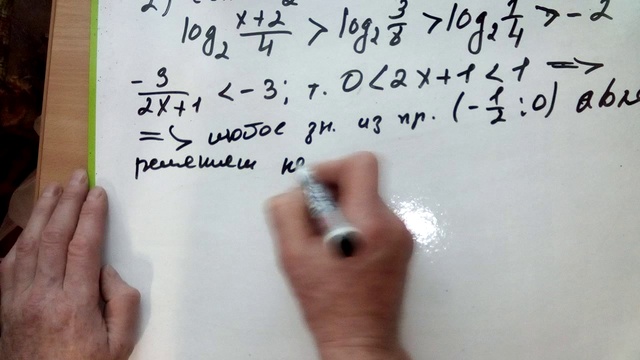 2)
log₂ (x+2)/4 > log₂ 3/8 > log₂ 1/4 > -2
-3/(2x+1) < -3; т. 0<2x+1<1 =>
=> любое зн. из пр. (-1/2; 0) явля
решением